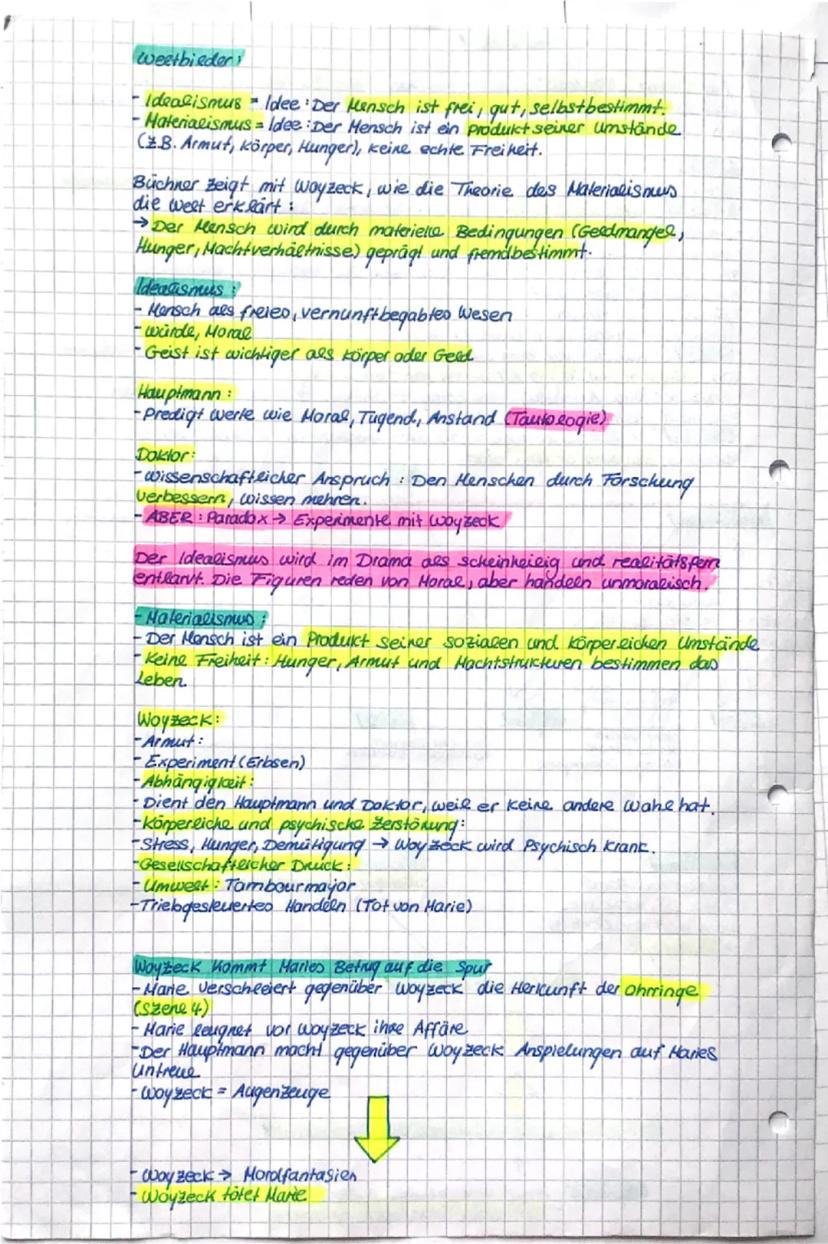 Weltbilder:
- Idealismus = Idee: Der Mensch ist frei, gut, selbstbestimmt.
- Materialismus = Idee: Der Mensch ist ein produkt seiner Umstände
(z.B. Armut, Körper, Hunger), keine echte Freiheit.
Büchner zeigt mit Woyzeck, wie die Theorie des Materialismus
die Welt erklärt:
→ Der Mensch wird durch materielle Bedingungen (Geldmangel,
Hunger, Machtverhältnisse) geprägt und fremdbestimmt.
Idealismus:
- Mensch als freies, vernunftbegabtes Wesen
- Würde, Moral
- Geist ist wichtiger als Körper oder Geld
Hauptmann:
- Predigt Werte wie Moral, Tugend, Anstand (Tautologie)
Doktor:
- Wissenschaftlicher Anspruch: Den Menschen durch Forschung
verbessern, wissen mehren.
- ABER: Paradox → Experimente mit Woyzeck
Der Idealismus wird im Drama als scheinheilig und realitätsfern
entlarvt. Die Figuren reden von Moral, aber handeln unmoralisch.
- Materialismus:
- Der Mensch ist ein Produkt seiner sozialen und körperlichen Umstände
- Keine Freiheit: Hunger, Armut und Machtstrukturen bestimmen das
Leben.
Woyzeck:
- Armut:
- Experiment (Erbsen)
- Abhängigkeit:
- Dient den Hauptmann und Doktor, weil er keine andere Wahl hat.
- Körperliche und psychische Zerstörung:
- Stress, Hunger, Demütigung → Woyzeck wird Psychisch krank.
- Gesellschaftlicher Druck:
- Umwelt: Tambourmajor
- Triebgesteuertes Handeln (Tot von Marie)
Woyzeck kommt Maries Betrug auf die Spur
- Marie verschleiert gegenüber Woyzeck die Herkunft der Ohrringe
(Szene 4)
- Marie leugnet vor Woyzeck ihre Affäre
- Der Hauptmann macht gegenüber Woyzeck Anspielungen auf Maries
Untreue
- Woyzeck = Augenzeuge
- Woyzeck → Mordfantasien
- Woyzeck tötet Marie